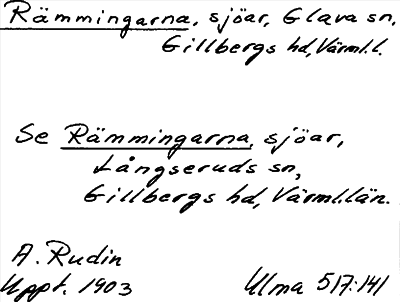 Rämmingarna, sjöar, Glava sn,
Gillbergs hd, Värml.l.
Se Rämmingarna, sjöar,
Långseruds sn,
Gillbergs hd, Värml.län.
A. Rudin
Uppt. 1903 Ulma 517:141